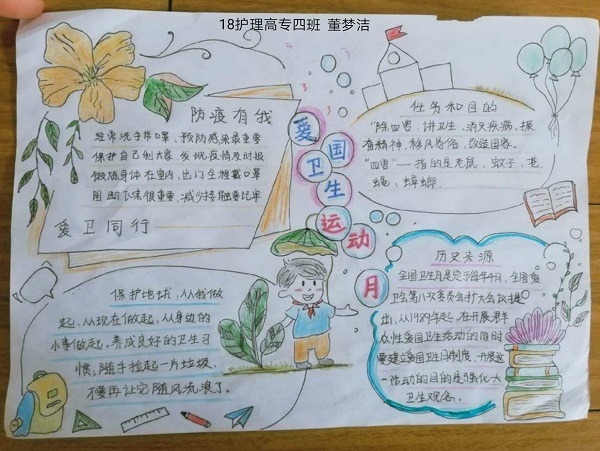 18护理高专四班 董梦洁
防疫有我
经常洗手带口罩、预防感染最重要
保护自己利大家、发现疫情及时报
做隔身体在室内,出门全程戴口罩
阻断飞沫很重要、减少接触善比率
爱卫同行
爱国卫生运动月
任务和目的
"除四害、讲卫生、消灭疾病,振
奋精神,移风易俗、改造国家。
"四害"——指的是老鼠、蚊子、苍
蝇、蟑螂。
保护地球,从我做
起,从现在做起,从身边的
小事做起,养成良好的卫生习
惯,随手捡起一片垃圾,
不要再让它随风流浪了。
历史来源
全国卫生月是定于每年4月、全国爱
卫会第八次委员会扩大会议提
出,从1989年起、在开展群
众性爱国卫生活动的同时
要建立爱国卫生月制度、开展这
一活动的目的是强化大
卫生观念。